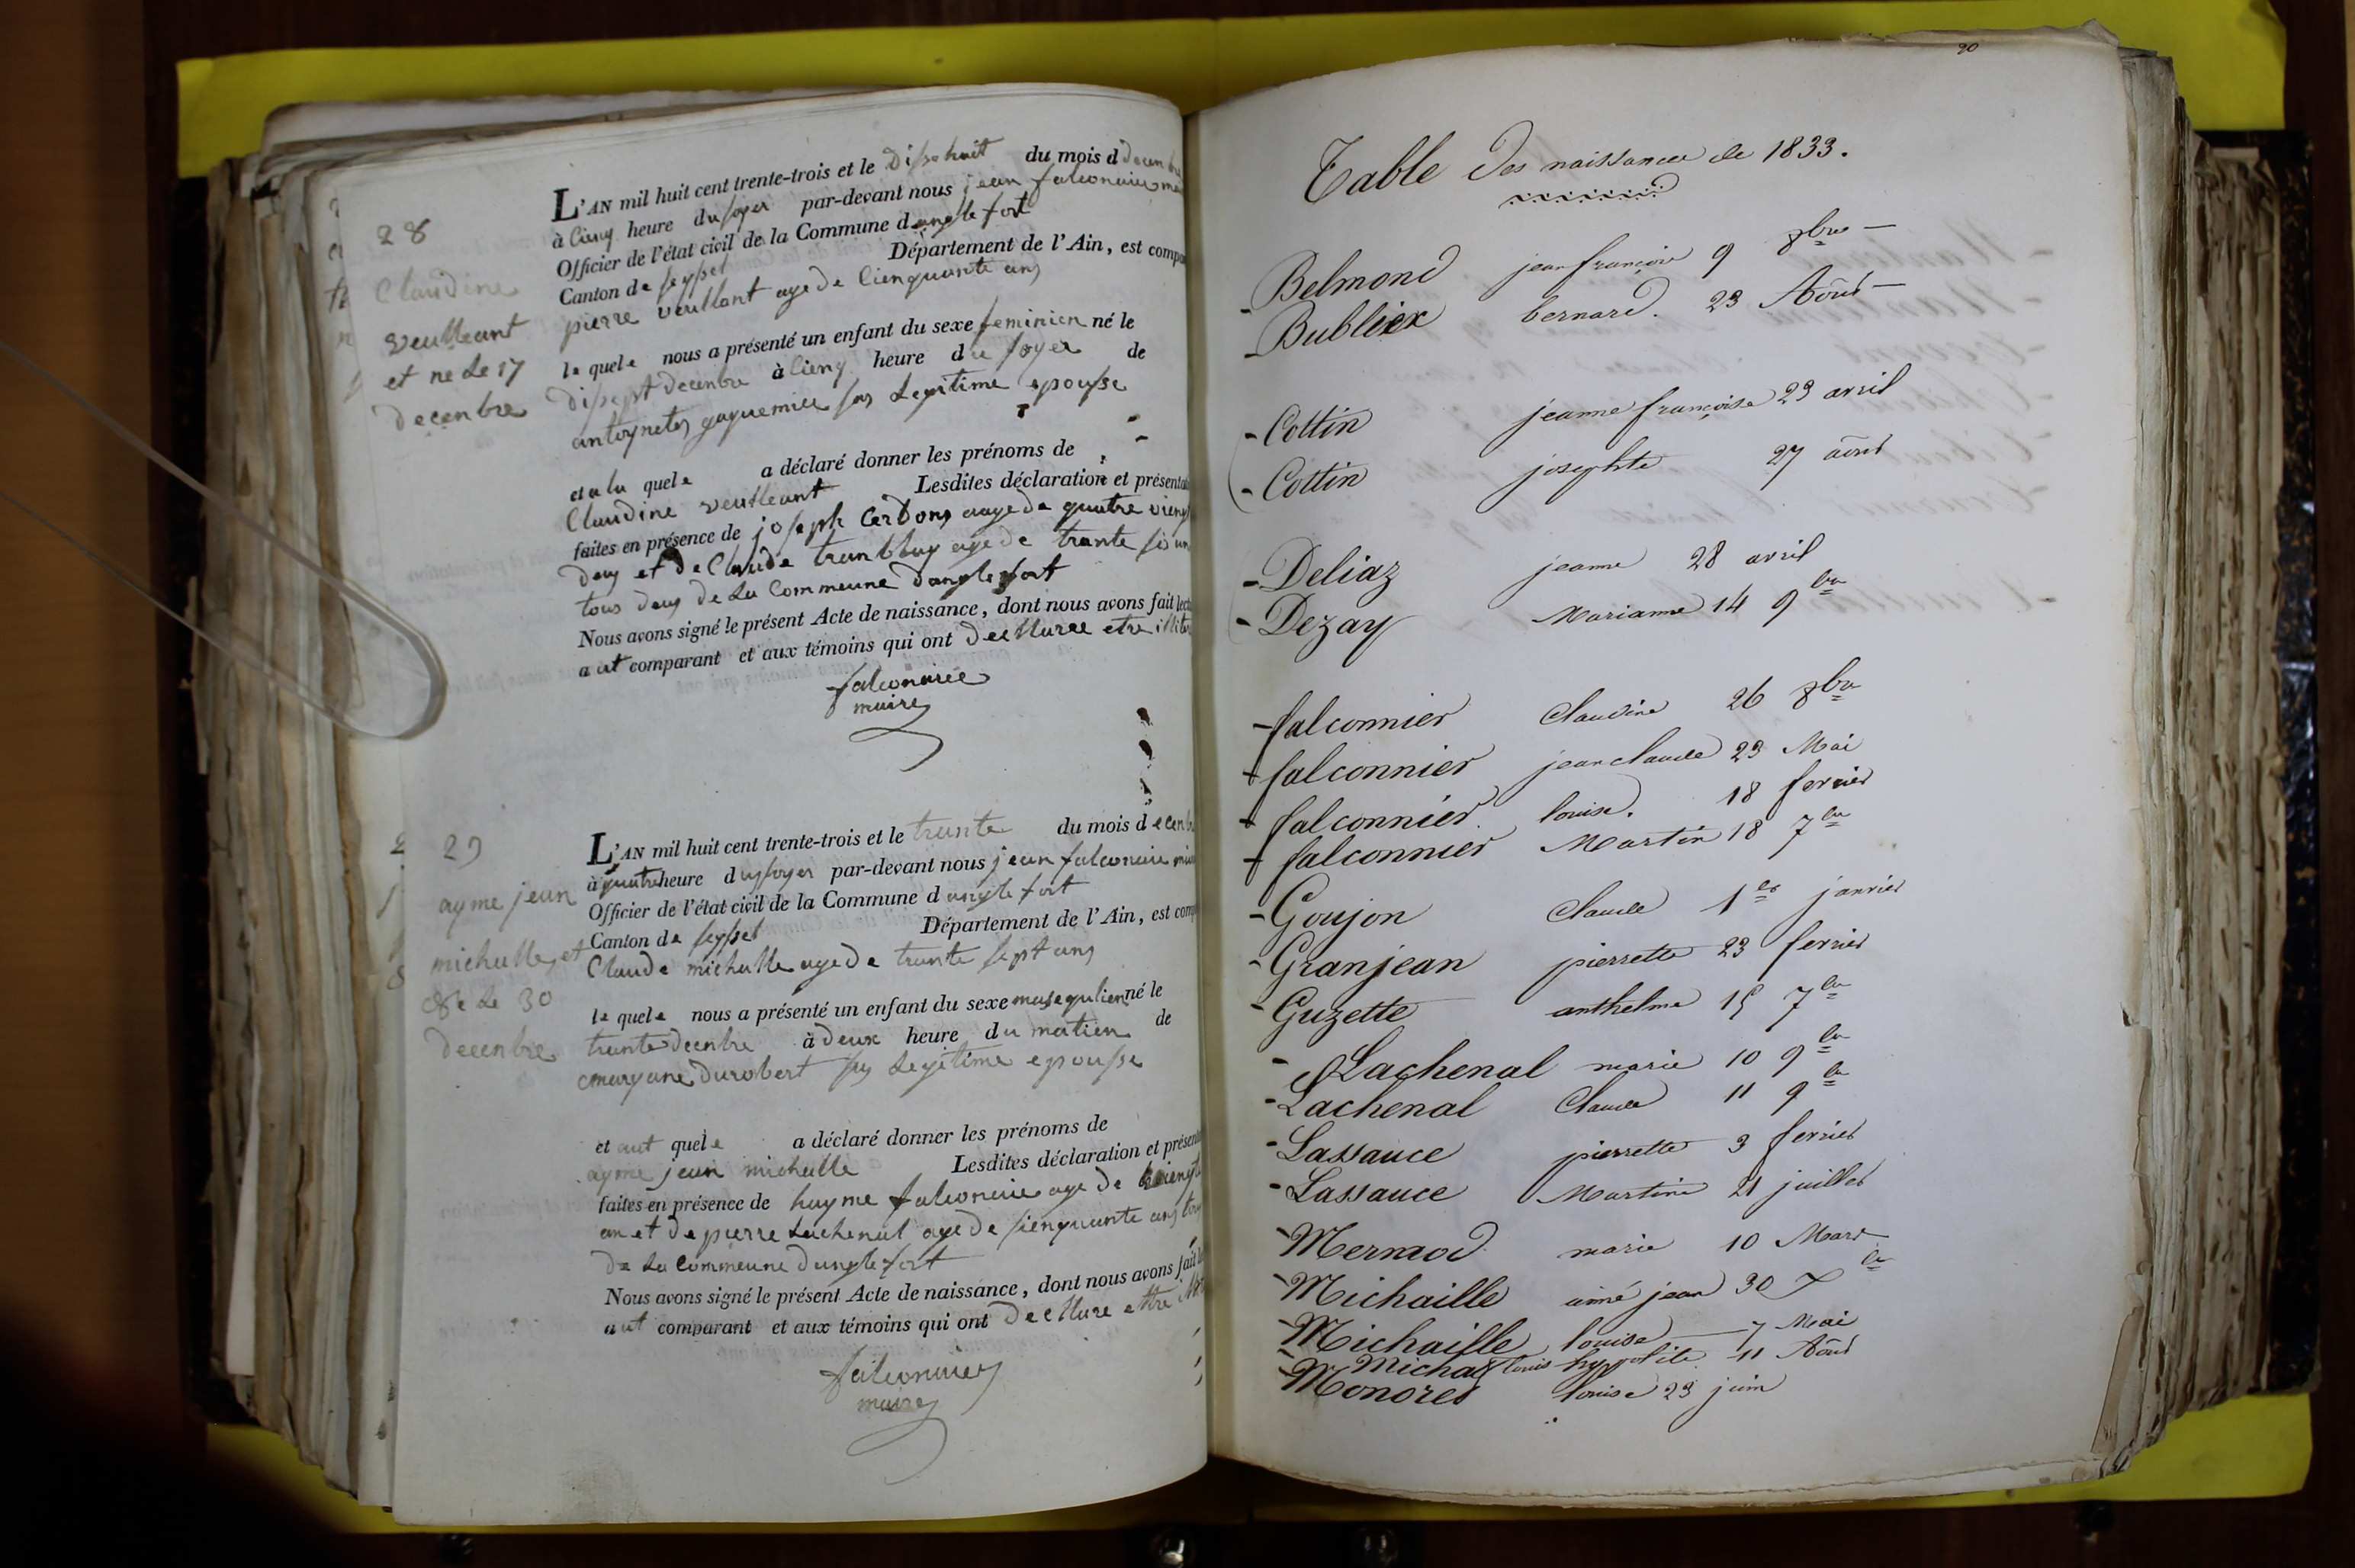 28
Claudine
veulleant
et ne le 17
decenbre
L'AN mil huit cent trente-trois et le dissehuit du mois d decenbre
à cienq heure du soyer par-devant nous jean falconnier
Officier de l'état civil de la Commune d anglefort
Canton de seyssel Département de l'Ain, est
pierre veullant age de cienquante ans
le quele nous a présenté un enfant du sexe feminien né le
dissept decenbre à cienq heure du soyer de
antoynete gaguemier sas Legitime epousse
et a lu quele a déclaré donner les prénoms de
Claudine veulleant Lesdites déclaration et
faites en présence de joseph Cerdons aage de quatre
deux et de Claude age de trante sis
tous deux de La Commeune d'anglefort
Nous avons signé le présent Acte de naissance, dont nous avons fait
a ut comparant et aux témoins qui ont declluree etre
falconniee
maire
29
ayme jean
michalle et
ne Le 30
decenbre
L'AN mil huit cent trente-trois et le trante du mois d ecenbre
à quatre heure du soyer par-devant nous jean falconnier
Officier de l'état civil de la Commune d anglefort
Canton de seyssel Département de l'Ain, est
Claude michalle age de trante sept ans
le quele nous a présenté un enfant du sexe né le
trante decnbre à deux heure du matien de
maryane durobert sas Legitime epousse
et aut quele a déclaré donner les prénoms de
ayme jean michalle Lesdites déclaration et
faites en présence de hayme falconnier age de
an et de pierre Lachenal age de sienquante ans
de La Commeune d'anglefort
Nous avons signé le présent Acte de naissance, dont nous avons fait
aut comparant et aux témoins qui ont decllure ettre
falconnier
maire
90
Table des naissances de 1833.
- Belmond jean françois 9 8bre -
- Bublicx bernard. 23 Août -
- Cottin jeanne françoise 23 avril
- Cottin josephte 27 août
- Deliaz jeanne 28 avril
- Dezay Marianne 14 9bre
- falconnier Claudine 26 8bre
+ falconnier jean claude 23 Mai
+ falconnier louise. 18 fevrier
+ falconnier Martin 18 7bre
- Goujon Claude 1er janvier
- Granjean pierrette 23 fevrier
- Guzette anthelme 15 7bre
- Lachenal marie 10 9bre
- Lachenal Claude 11 9bre
- Lassauce pierrette 3 fevrier
- Lassauce Martine 21 juillet
- Mermod marie 10 Mars
- Michaille aimé jean 30 Xbre
- Michaille louise 7 Mai
- Michaux louis hyppolite 11 Août
- Monoret louise 23 juin